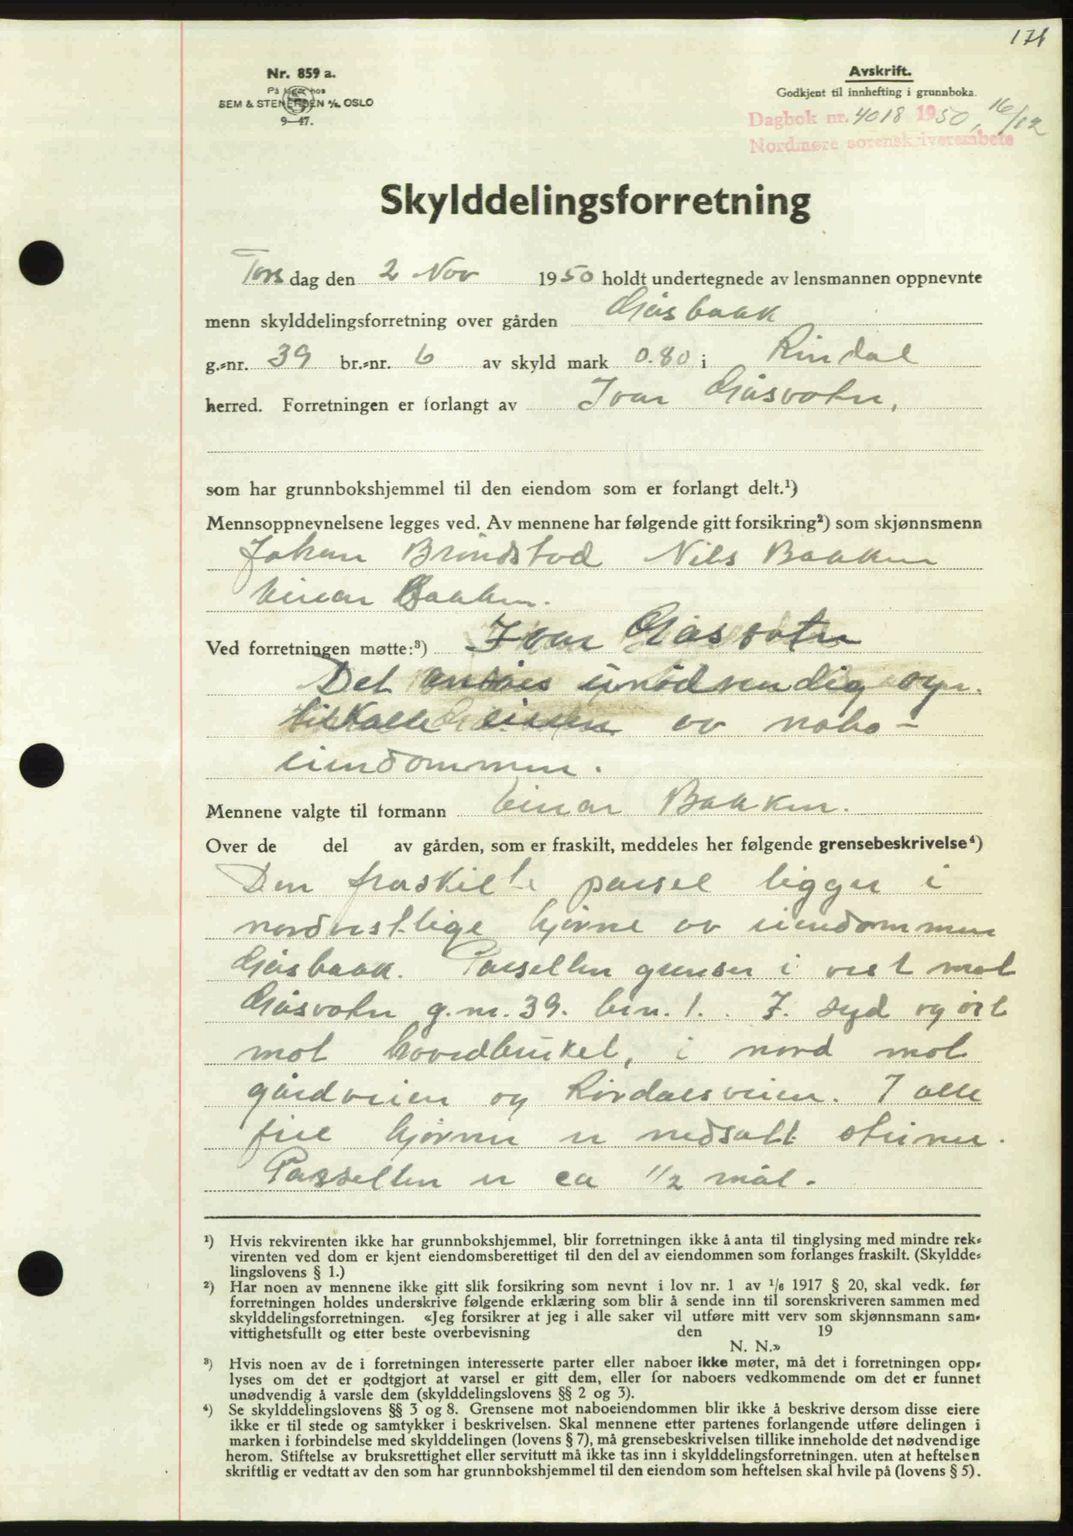 171
Nr. 859 a.
På lager hos
SEM & STENERSEN A/S, OSLO
9—47.
Avskrift.
Godkjent til innhefting i grunnboka.
Dagbok nr. 4018 1950, 16/12
Nordmøre sorenskriverembete
Skylddelingsforretning
Torsdag den 2 Nov 1950 holdt undertegnede av lensmannen oppnevnte
menn skylddelingsforretning over gården Gåsbakk
g.-nr. 39 br.-nr. 6 av skyld mark 0.80 i Rindal
herred. Forretningen er forlangt av Ivar Gåsvatn,
som har grunnbokshjemmel til den eiendom som er forlangt delt.¹)
Mennsoppnevnelsene legges ved. Av mennene har følgende gitt forsikring²) som skjønnsmenn
Johan Brøndstad Nils Bakken
Einar Bakken.
Ved forretningen møtte:³) Ivar Gåsvatn
Det ansåes unødvendig og
tilkalle eieren av nabo-
eiendommen.
Mennene valgte til formann Einar Bakken.
Over de del av gården, som er fraskilt, meddeles her følgende grensebeskrivelse⁴)
Den fraskilte parsel ligger i
nordvestlige hjørne av eiendommen
Gåsbakk. Parsellen grenser i vest mot
Gåsvatn g.nr. 39. br.n. 1. I syd og øst
mot hovedbruket, i nord mot
gårdveien og Rørdalsveien. I alle
fire hjørner er nedsatt steiner.
Parsellen er ca 1/2 mål.
¹) Hvis rekvirenten ikke har grunnbokshjemmel, blir forretningen ikke å anta til tinglysing med mindre rek-
virenten ved dom er kjent eiendomsberettiget til den del av eiendommen som forlanges fraskilt. (Skyldde-
lingslovens § 1.)
²) Har noen av mennene ikke gitt slik forsikring som nevnt i lov nr. 1 av 1/6 1917 § 20, skal vedk. før
forretningen holdes underskrive følgende erklæring som blir å sende inn til sorenskriveren sammen med
skylddelingsforretningen. «Jeg forsikrer at jeg i alle saker vil utføre mitt verv som skjønnsmann sam-
vittighetsfullt og etter beste overbevisning den 19
N. N.»
³) Hvis noen av de i forretningen interesserte parter eller naboer ikke møter, må det i forretningen opp-
lyses om det er godtgjort at varsel er gitt dem, eller for naboers vedkommende om det er funnet
unødvendig å varsle dem (skylddelingslovens §§ 2 og 3).
⁴) Se skylddelingslovens §§ 3 og 8. Grensene mot naboeiendommen blir ikke å beskrive dersom disse eiere
ikke er til stede og samtykker i beskrivelsen. Skal mennene etter partenes forlangende utføre delingen i
marken i forbindelse med skylddelingen (lovens § 7), må grensebeskrivelsen tillike inneholde det nødvendige
herom. Stiftelse av bruksrettighet eller servitutt må ikke tas inn i skylddelingsforretningen, uten at heftelsen
skriftlig er vedtatt av den som har grunnbokshjemmel til den eiendom som heftelsen skal hvile på (lovens § 5).